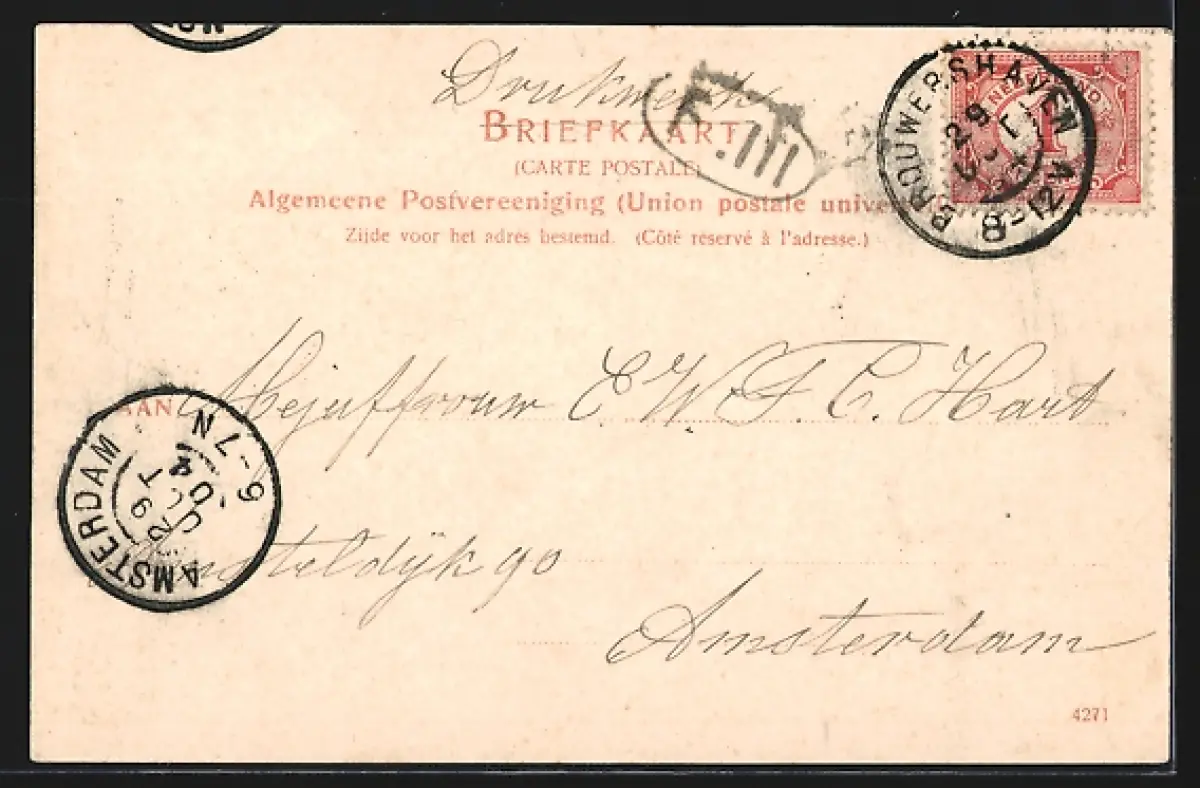 Drukwerk
BRIEFKAART
(CARTE POSTALE)
F.III
Algemeene Postvereeniging (Union postale unive
Zijde voor het adres bestemd. (Côté reservé à l'adresse.)
BROUWERSHAVEN
29
8-12V
1
AAN
Mejuffrouw E. W. F. C. Hart
Amsteldijk 90
Amsterdam
AMSTERDAM
6-7N
4271